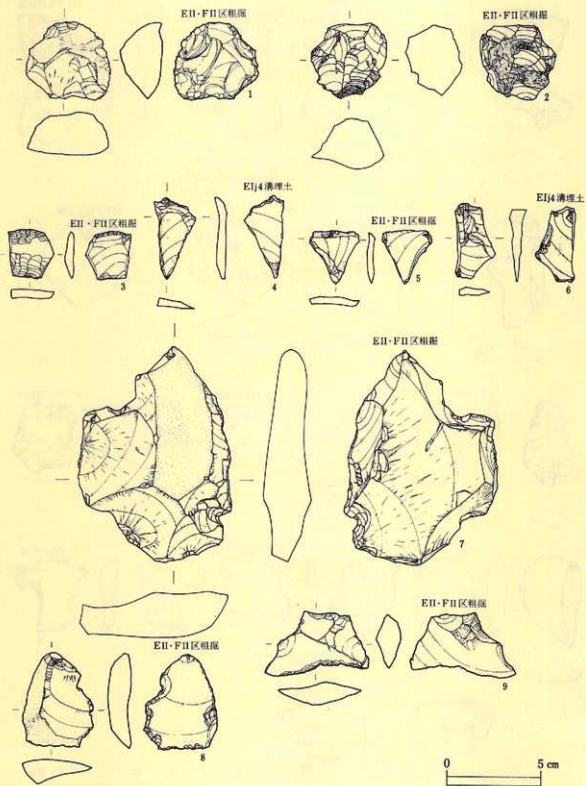 EII・FII区粗掘
1
EII・FII区粗掘
2
EII・FII区粗掘
3
EIj4溝埋土
4
EII・FII区粗掘
5
EIj4溝埋土
6
EII・FII区粗掘
7
EII・FII区粗掘
8
EII・FII区粗掘
9
0 5 cm